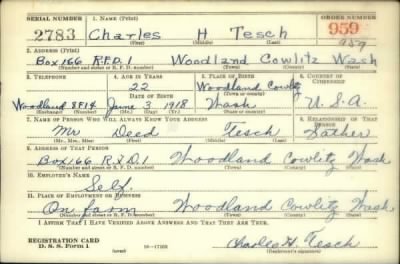 SERIAL NUMBER 1. NAME (Print) ORDER NUMBER
2783 Charles H Tesch 959
(First) (Middle) (Last) 959
2. ADDRESS (Print)
Box 166 R.F.D. 1 Woodland Cowlitz Wash
(Number and street or R. F. D. number) (Town) (County) (State)
3. TELEPHONE 4. AGE IN YEARS 5. PLACE OF BIRTH 6. COUNTRY OF CITIZENSHIP
22 Woodland Cowlitz
DATE OF BIRTH (Town or county)
Woodland 8F14 June 3 1918 Wash U.S.A.
(Exchange) (Number) (Mo.) (Day) (Yr.) (State or country)
7. NAME OF PERSON WHO WILL ALWAYS KNOW YOUR ADDRESS 8. RELATIONSHIP OF THAT PERSON
Mr Deed Tesch Father
(Mr., Mrs., Miss) (First) (Middle) (Last)
9. ADDRESS OF THAT PERSON
Box 166 R.F.D. 1 Woodland Cowlitz Wash
(Number and street or R. F. D. number) (Town) (County) (State)
10. EMPLOYER'S NAME
Self
11. PLACE OF EMPLOYMENT OR BUSINESS
On farm Woodland Cowlitz Wash
(Number and street or R. F. D. number) (Town) (County) (State)
I AFFIRM THAT I HAVE VERIFIED ABOVE ANSWERS AND THAT THEY ARE TRUE.
REGISTRATION CARD Charles H. Tesch
D. S. S. Form 1 (over) 16—17105 (Registrant's signature)